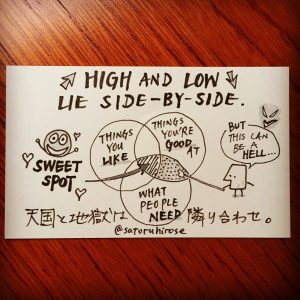 HIGH AND LOW
LIE SIDE-BY-SIDE.
THINGS
YOU
LIKE
THINGS
YOU'RE
GOOD
AT
BUT
THIS CAN
BE A
HELL...
SWEET
SPOT
WHAT
PEOPLE
NEED
天国と地獄は隣り合わせ。
@satoruhirose